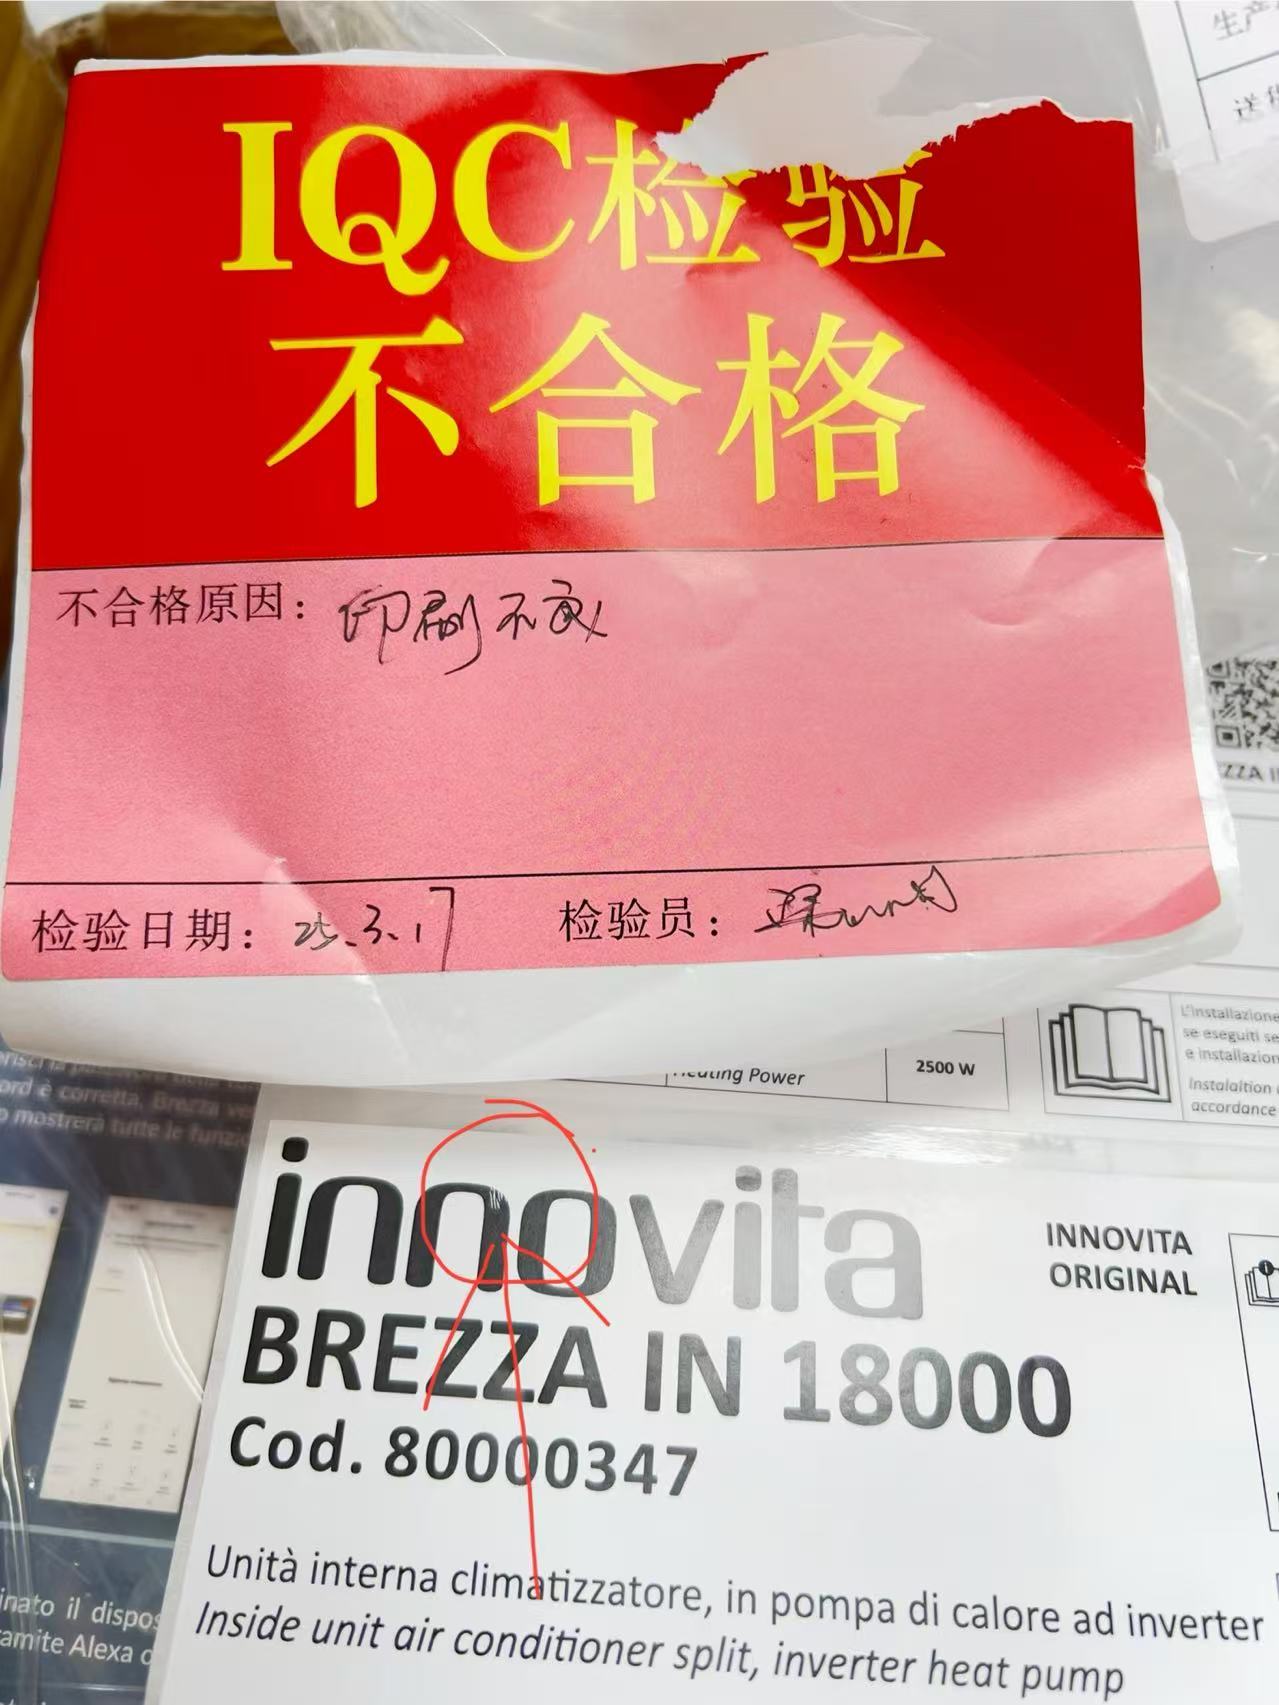 生产
送
IQC检验
不合格
不合格原因：印刷不良
检验日期：25.3.17
检验员：
ZZA I
Heating Power
2500 W
L'installazione
se eseguiti se
e installazion
Instalaltion
accordance
ord è corretta. Brezza ve
mostrerà tutte le funzio
innovita
INNOVITA
ORIGINAL
BREZZA IN 18000
Cod. 80000347
Unità interna climatizzatore, in pompa di calore ad inverter
Inside unit air conditioner split, inverter heat pump
inato il dispos
ramite Alexa o